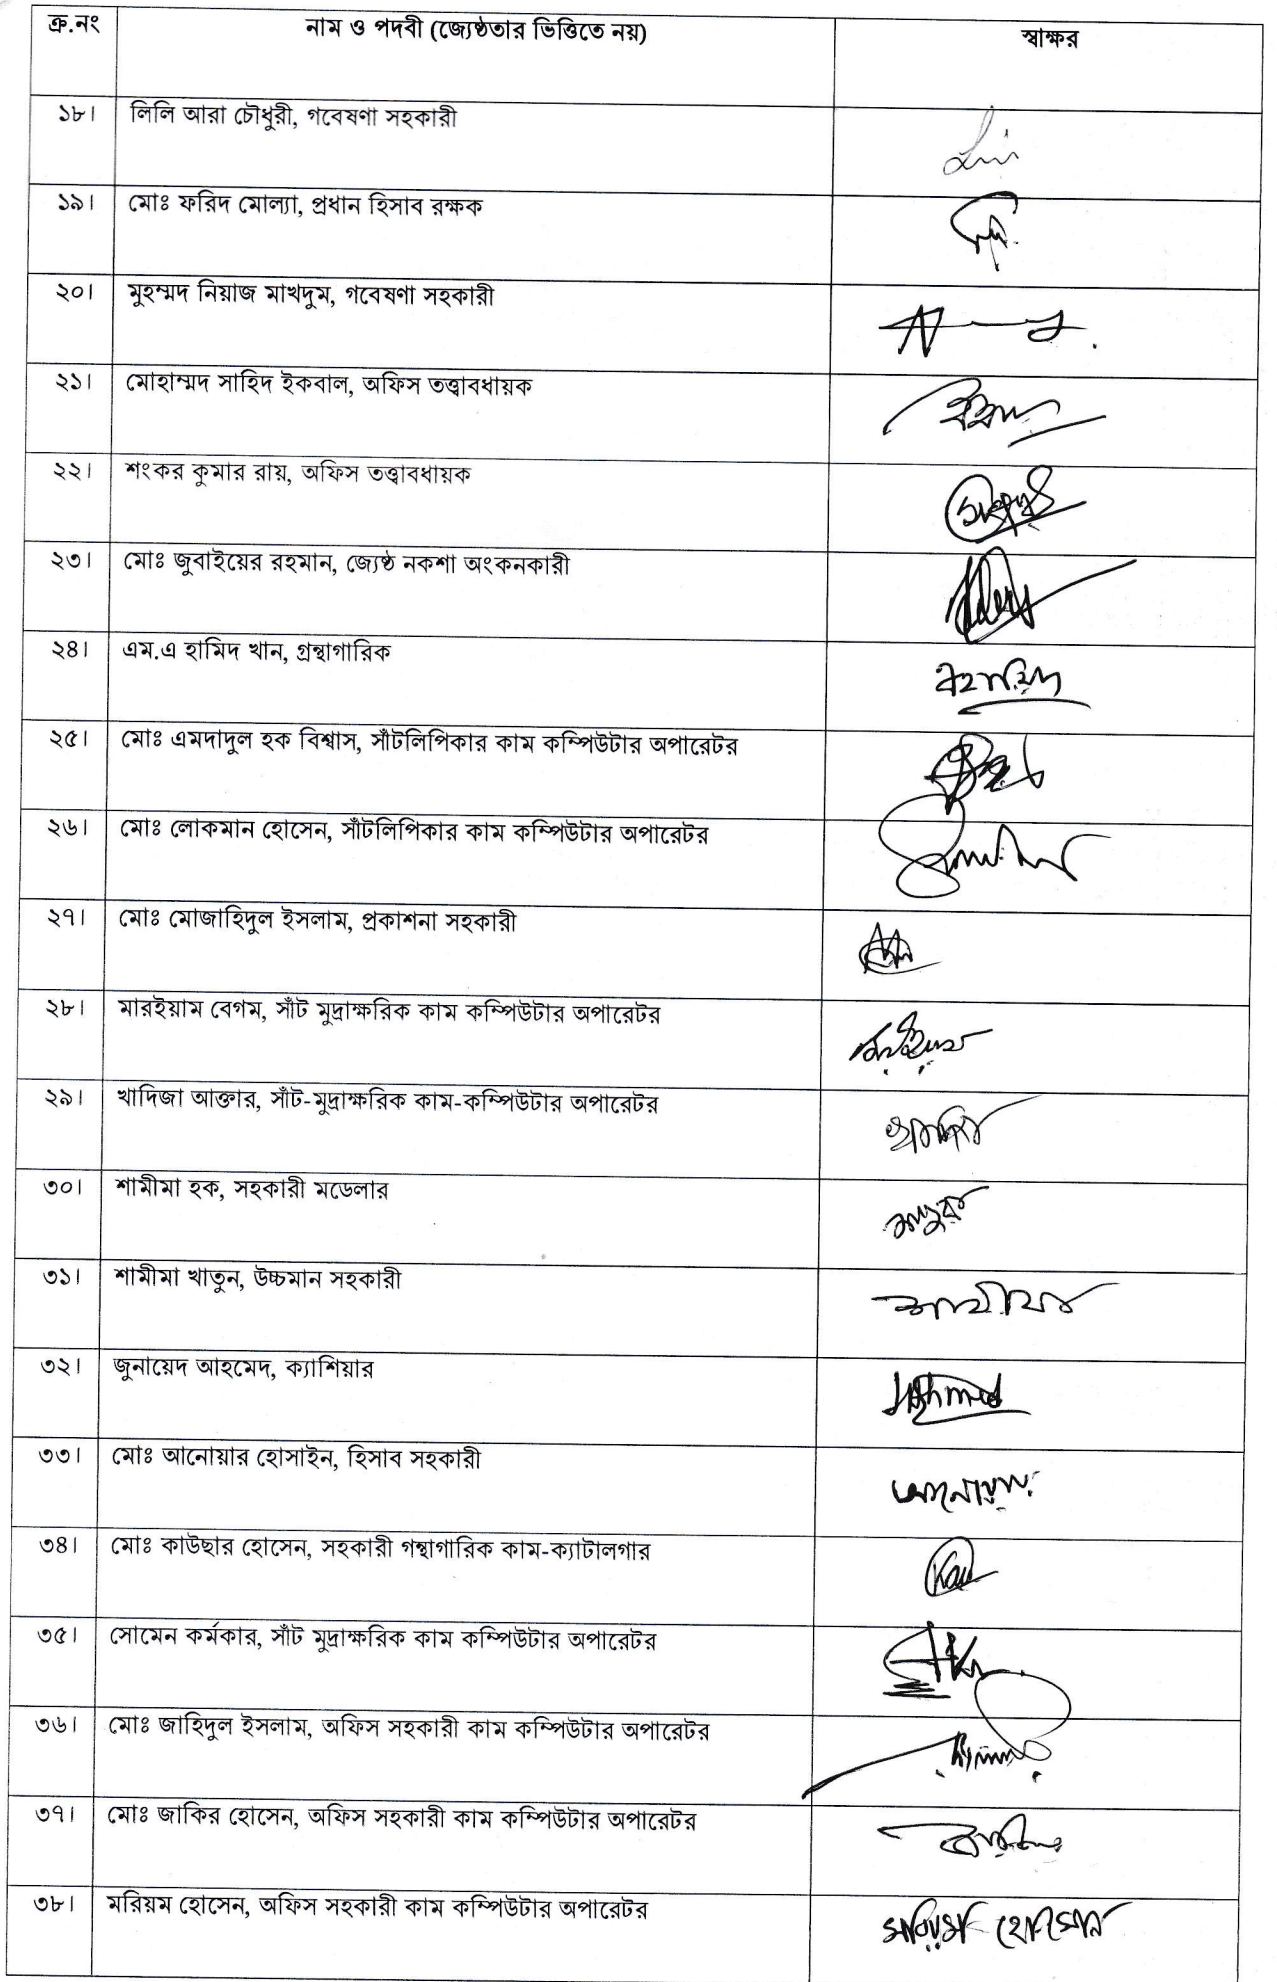 ক্র.নং নাম ও পদবী (জ্যেষ্ঠতার ভিত্তিতে নয়) স্বাক্ষর
১৮। লিলি আরা চৌধুরী, গবেষণা সহকারী
১৯। মোঃ ফরিদ মোল্যা, প্রধান হিসাব রক্ষক
২০। মুহম্মদ নিয়াজ মাখদুম, গবেষণা সহকারী
২১। মোহাম্মদ সাহিদ ইকবাল, অফিস তত্ত্বাবধায়ক
২২। শংকর কুমার রায়, অফিস তত্ত্বাবধায়ক
২৩। মোঃ জুবাইয়ের রহমান, জ্যেষ্ঠ নকশা অংকনকারী
২৪। এম.এ হামিদ খান, গ্রন্থাগারিক
২৫। মোঃ এমদাদুল হক বিশ্বাস, সাঁটলিপিকার কাম কম্পিউটার অপারেটর
২৬। মোঃ লোকমান হোসেন, সাঁটলিপিকার কাম কম্পিউটার অপারেটর
২৭। মোঃ মোজাহিদুল ইসলাম, প্রকাশনা সহকারী
২৮। মারইয়াম বেগম, সাঁট মুদ্রাক্ষরিক কাম কম্পিউটার অপারেটর
২৯। খাদিজা আক্তার, সাঁট-মুদ্রাক্ষরিক কাম-কম্পিউটার অপারেটর
৩০। শামীমা হক, সহকারী মডেলার
৩১। শামীমা খাতুন, উচ্চমান সহকারী
৩২। জুনায়েদ আহমেদ, ক্যাশিয়ার
৩৩। মোঃ আনোয়ার হোসাইন, হিসাব সহকারী আনোয়ার
৩৪। মোঃ কাউছার হোসেন, সহকারী গন্থাগারিক কাম-ক্যাটালগার
৩৫। সোমেন কর্মকার, সাঁট মুদ্রাক্ষরিক কাম কম্পিউটার অপারেটর
৩৬। মোঃ জাহিদুল ইসলাম, অফিস সহকারী কাম কম্পিউটার অপারেটর
৩৭। মোঃ জাকির হোসেন, অফিস সহকারী কাম কম্পিউটার অপারেটর
৩৮। মরিয়ম হোসেন, অফিস সহকারী কাম কম্পিউটার অপারেটর মরিয়ম হোসেন